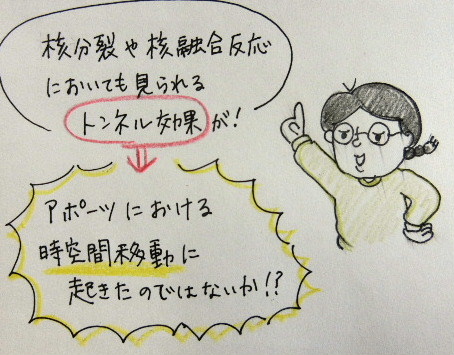 核分裂や核融合反応
においても見られる
トンネル効果が!
アポーツにおける
時空間移動に
起きたのではないか!?